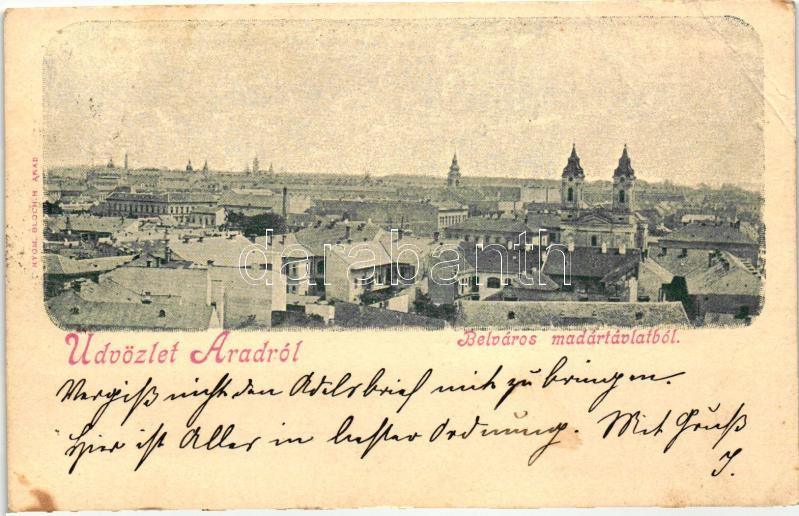 NYOM. BLOCH H. ARAD
darabanth
Üdvözlet Aradról
Belváros madártávlatból.
Vergiß nicht den Adelsbrief mit zu bringen.
Hier ist Alles in bester Ordnung. Mit Gruß
J.